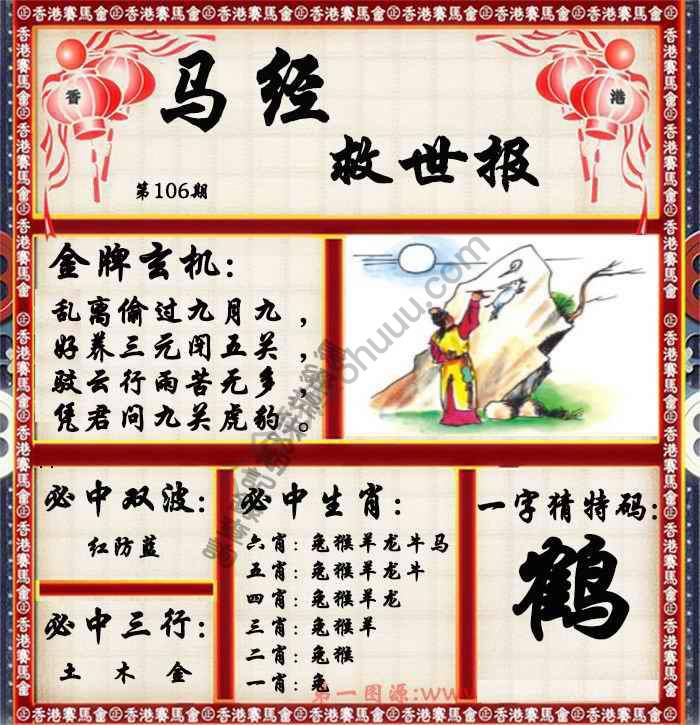 香港賽馬會㊣香港賽馬會㊣香港賽馬會㊣香港賽馬會㊣香港賽馬會㊣香港賽馬會㊣香港賽馬會
香
港
马经
救世报
第106期
金牌玄机：
乱离偷过九月九，
好养三元闭五关，
驳云行雨苦无多，
凭君问九关虎豹。
必中双波：
红防蓝
必中三行：
土 木 金
必中生肖：
六肖：兔猴羊龙牛马
五肖：兔猴羊龙牛
四肖：兔猴羊龙
三肖：兔猴羊
二肖：兔猴
一肖：兔
一字猜特码：
鹤
第一图源:www